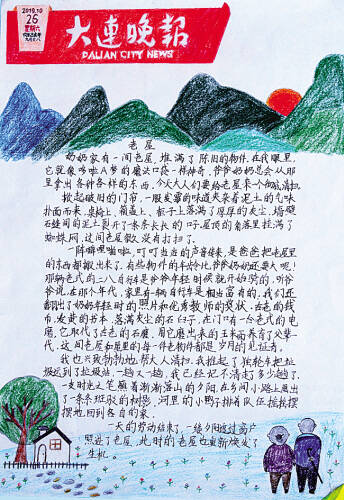 2019.10
26
星期六
大连晚报
DALIAN CITY NEWS
老屋
奶奶家有一间老屋,堆满了陈旧的物件。在我眼里,
它就像哆啦A梦的魔法口袋一样神奇,爷爷奶奶总会从那
里拿出各种各样的东西。今天大人们要给老屋来个彻底清扫。
掀起破旧的门帘,一股发霉的味道夹着泥土的气味
扑面而来。桌椅上、箱盖上、柜子上落满了厚厚的灰尘,墙壁
石缝间的泥土裂开了一条条长长的口子,屋顶的角落里挂满了
蜘蛛网。这间老屋很久没有打扫了。
一阵噼里啪啦、叮叮当当的声音传来,是爸爸把老屋里
的东西都搬出来了。有些物件的年龄比爷爷奶奶还要大呢。
那辆老式的二八自行车是爷爷年轻时候就开始骑的。听爷
爷说,在那个年代,家里有一辆自行车是相当富有的。我们还
翻出了奶奶年轻时的照片和优秀教师的奖状,古老的钱
币,发黄的书本,落满灰尘的石臼子。在门口有一台老式的电
磨,它取代了古老的石磨,用它磨出来的玉米面养育了父辈一
代。这间老屋和屋里的每一件老物件都是岁月的见证者。
我也兴致勃勃地帮大人清扫。我推起了独轮车把垃
圾送到了垃圾站,一趟又一趟,我已经记不清走了多少趟了。
一支时光之笔蘸着渐渐落山的夕阳,在乡间小路上画出
了一条条斑驳的树影。河里的小鸭子排着队伍摇摇摆
摆地回到各自的家。
一天的劳动结束了,一缕夕阳透过窗户
照进了老屋,此时的老屋也重新焕发了
生机。